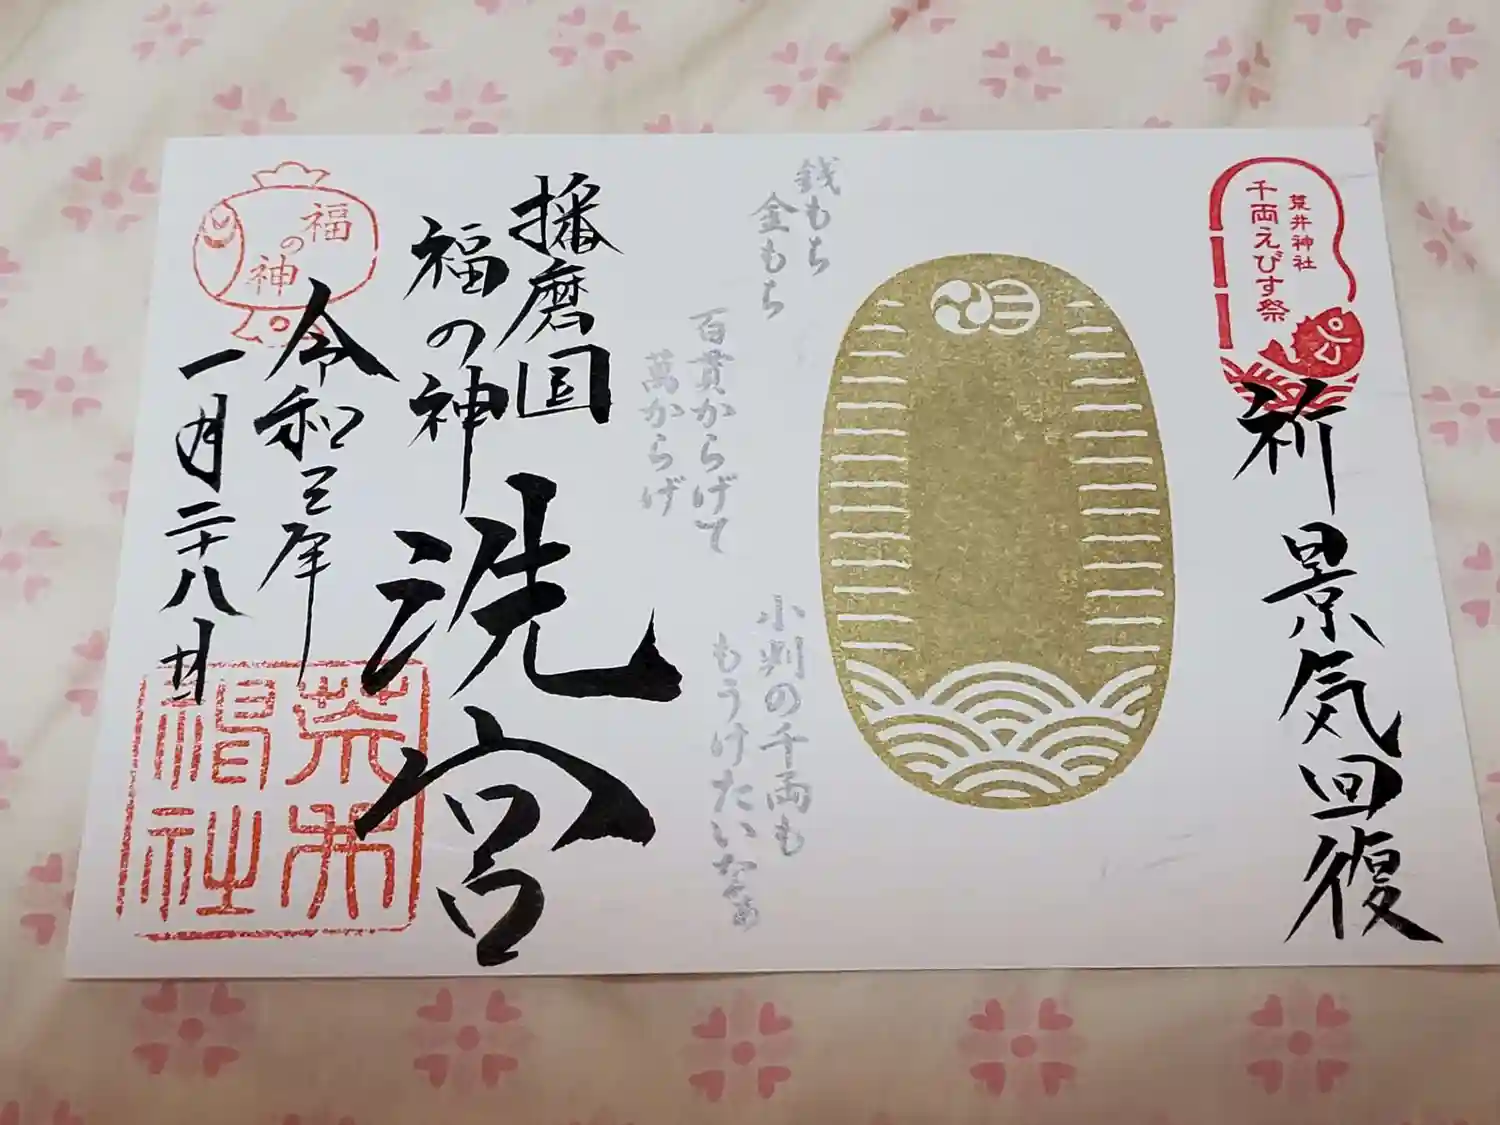 荒井神社
千両えびす祭
祈 景気回復
銭もち
金もち
百貫からげて
萬からげ
小判の千両も
もうけたいなぁ
播磨国
福の神
洗宮
福の神
令和三年
一月二十八日
荒井神社